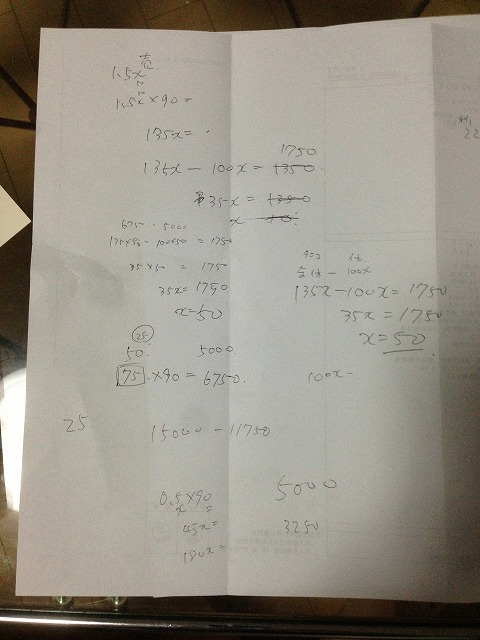 1.5x
1.5x × 90 =
135x =
1750
135x - 100x = 1350
35x = 1350
x = 10
6750 - 5000
135×50 - 100×50 = 1750
35×50 = 1750
35x = 1750
x = 50
- 100x
135x - 100x = 1750
35x = 1750
x = 50
25
50 5000
75 × 90 = 6750
100x -
25
15000 - 11750
0.5 × 90
x =
5000
45x =
3250
180x =
22